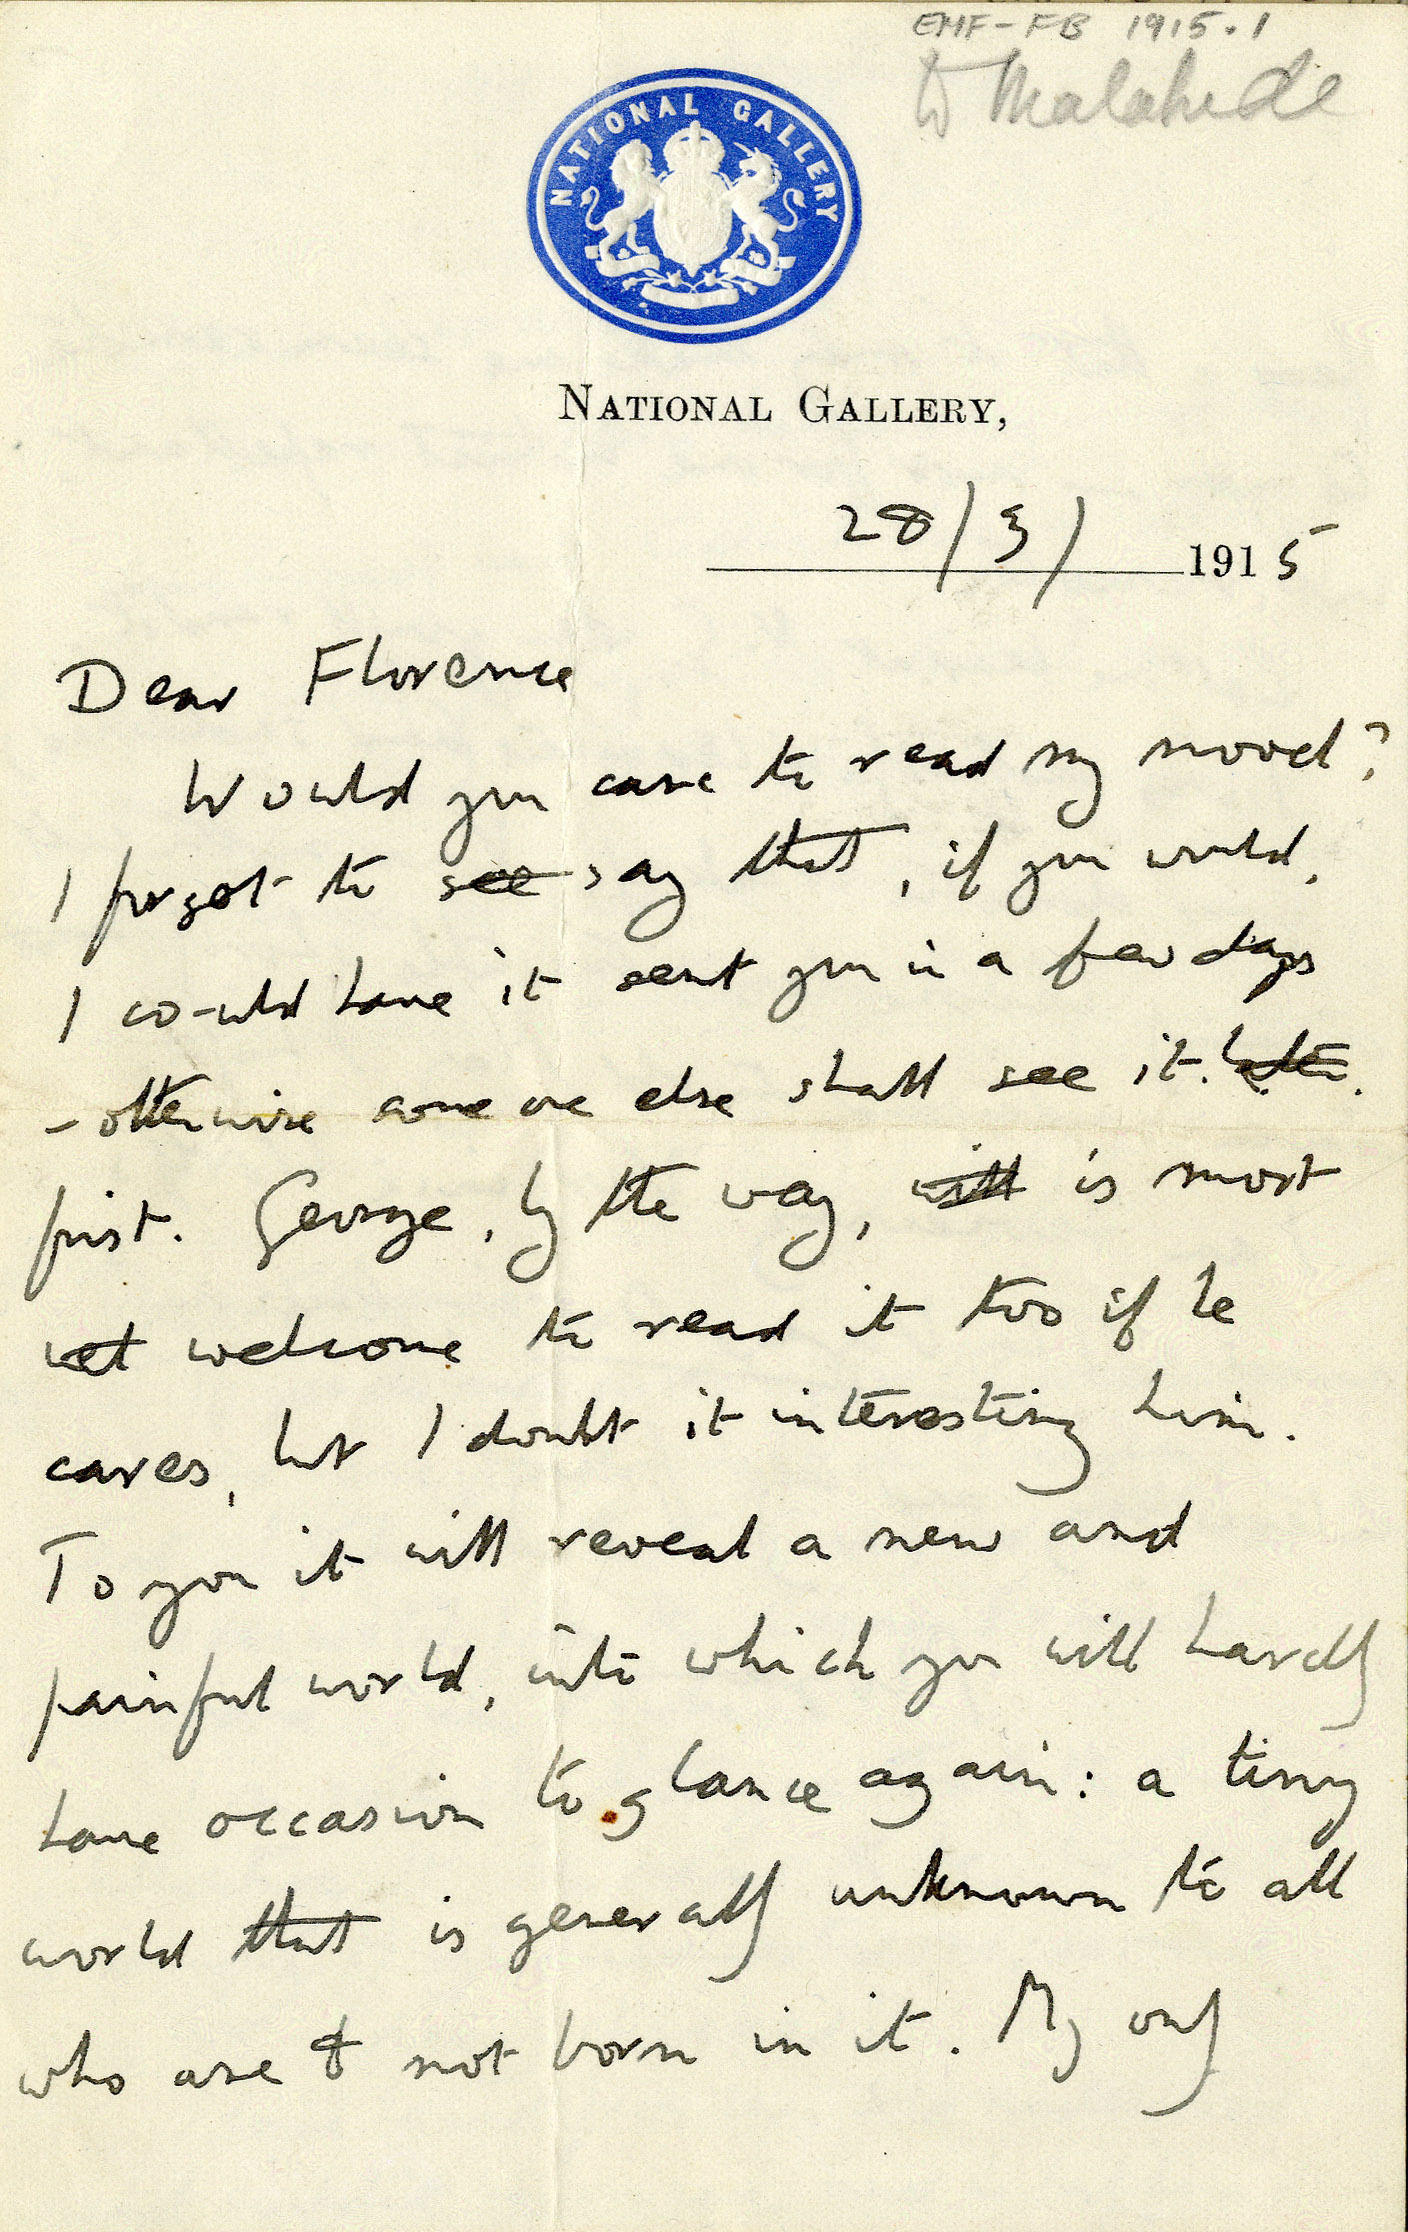 EMF-FB 1915.1
to Malahide
NATIONAL GALLERY
NATIONAL GALLERY,
28/3/ 1915
Dear Florence
Would you care to read my novel?
I forgot to see say that, if you would,
I could have it sent you in a few days
- otherwise some one else shall see it. later.
first. George, by the way, will is most
wel welcome to read it too if he
cares, but I doubt it interesting him.
To you it will reveal a new and
painful world, into which you will hardly
have occasion to glance again: a tiny
world that is generally unknown to all
who are not born in it. My only